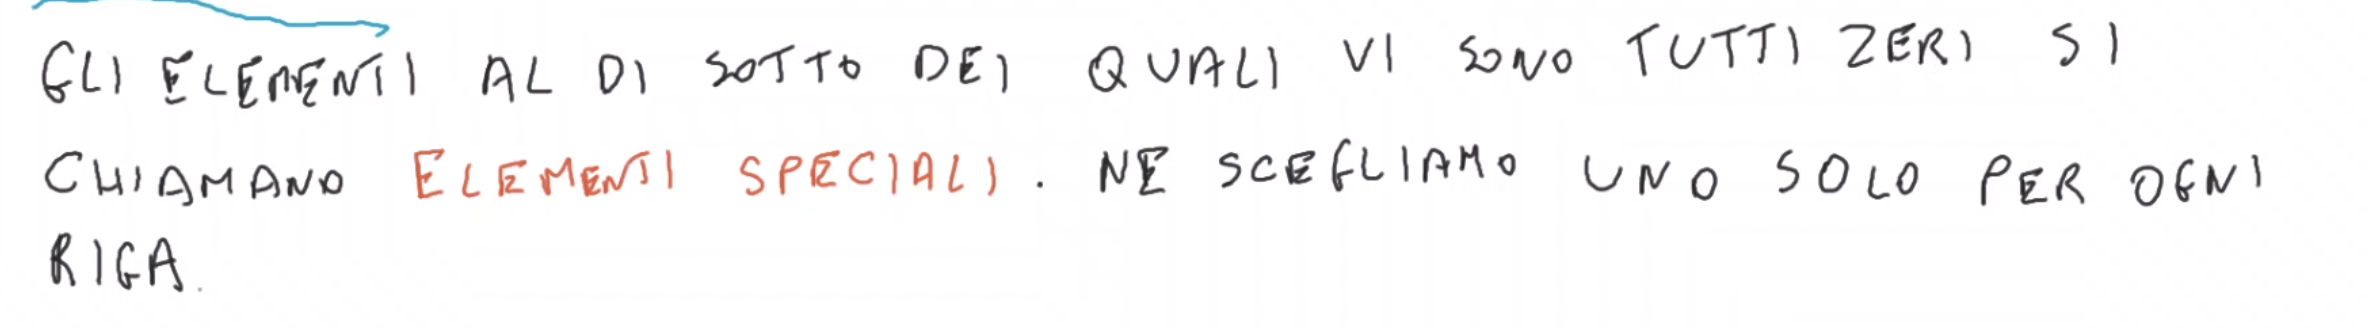 GLI ELEMENTI AL DI SOTTO DEI QUALI VI SONO TUTTI ZERI SI
CHIAMANO ELEMENTI SPECIALI. NE SCEGLIAMO UNO SOLO PER OGNI
RIGA.